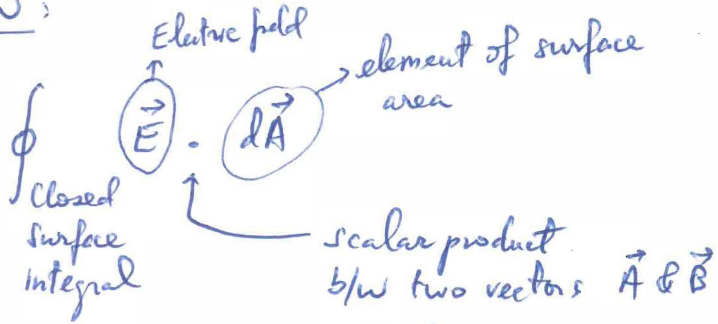 Electric field
element of surface
area
∮ E⃗ . dA⃗
Closed
surface
integral
scalar product
b/w two vectors A⃗ & B⃗